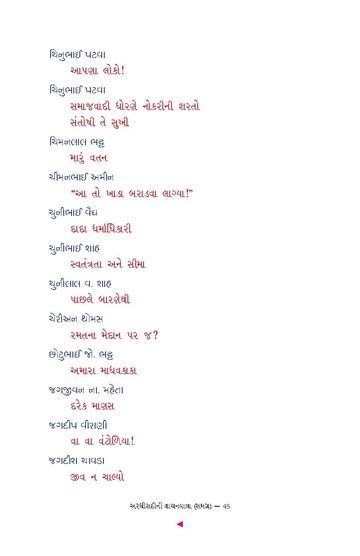 ચિનુભાઈ પટવા
આપણા લોકો!
ચિનુભાઈ પટવા
સમાજવાદી ધોરણે નોકરીની શરતો
સંતોષી તે સુખી
ચિમનલાલ ભટ્ટ
મારું વતન
ચીમનભાઈ અમીન
“આ તો ખાડા બરાડવા લાગ્યા!”
ચુનીભાઈ વૈદ્ય
દાદા ધર્માધિકારી
ચુનીભાઈ શાહ
સ્વતંત્રતા અને સીમા
ચુનીલાલ વ. શાહ
પાછલે બારણેથી
ચેરીઅન થોમસ
રમતના મેદાન પર જ?
છોટુભાઈ જો. ભટ્ટ
અમારા માધવકાકા
જગજીવન ના. મહેતા
દરેક માણસ
જગદીપ વીરાણી
વા વા વંટોળિયા!
જગદીશ ચાવડા
જીવ ન ચાલ્યો
અરધીસદીની વાચનયાત્રા (સમગ્ર) — 45